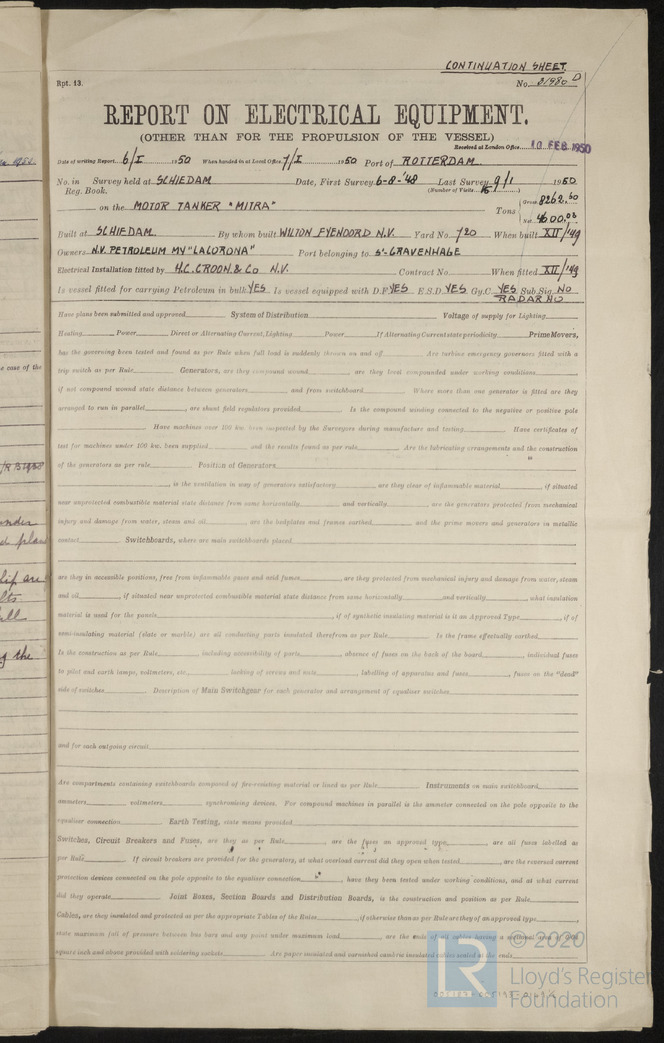 CONTINUATION SHEET.
Rpt. 13.
No. 31980 D
REPORT ON ELECTRICAL EQUIPMENT.
(OTHER THAN FOR THE PROPULSION OF THE VESSEL)
Received at London Office 10 FEB 1950
Date of writing Report 6/I 1950 When handed in at Local Office 7/I 1950 Port of ROTTERDAM
No. in Survey held at SCHIEDAM Date, First Survey 6-8-'48 Last Survey 9/1 1950
Reg. Book. (Number of Visits 15)
on the MOTOR TANKER "MITRA" Tons Gross 8262.50
Net 4600.08
Built at SCHIEDAM By whom built WILTON FYENOORD N.V. Yard No 720 When built XII/'49
Owners N.V. PETROLEUM MY "LACORONA" Port belonging to S'-GRAVENHAGE
Electrical Installation fitted by H.C. CROON & Co N.V. Contract No. When fitted XII/'49
Is vessel fitted for carrying Petroleum in bulk YES Is vessel equipped with D.F. YES E.S.D. YES Gy.C. YES Sub.Sig. NO
RADAR NO
Have plans been submitted and approved System of Distribution Voltage of supply for Lighting
Heating Power Direct or Alternating Current, Lighting Power If Alternating Current state periodicity Prime Movers,
has the governing been tested and found as per Rule when full load is suddenly thrown on and off Are turbine emergency governors fitted with a
trip switch as per Rule Generators, are they compound wound are they level compounded under working conditions
if not compound wound state distance between generators and from switchboard Where more than one generator is fitted are they
arranged to run in parallel, are shunt field regulators provided Is the compound winding connected to the negative or positive pole
Have machines over 100 kw. been inspected by the Surveyors during manufacture and testing Have certificates of
test for machines under 100 kw. been supplied and the results found as per rule Are the lubricating arrangements and the construction
of the generators as per rule Position of Generators
, is the ventilation in way of generators satisfactory are they clear of inflammable material, if situated
near unprotected combustible material state distance from same horizontally and vertically, are the generators protected from mechanical
injury and damage from water, steam and oil, are the bedplates and frames earthed and the prime movers and generators in metallic
contact Switchboards, where are main switchboards placed
are they in accessible positions, free from inflammable gases and acid fumes, are they protected from mechanical injury and damage from water, steam
and oil, if situated near unprotected combustible material state distance from same horizontally and vertically, what insulation
material is used for the panels, if of synthetic insulating material is it an Approved Type, if of
semi-insulating material (slate or marble) are all conducting parts insulated therefrom as per Rule Is the frame effectually earthed
Is the construction as per Rule, including accessibility of parts, absence of fuses on the back of the board, individual fuses
to pilot and earth lamps, voltmeters, etc. locking of screws and nuts, labelling of apparatus and fuses, fuses on the "dead"
side of switches Description of Main Switchgear for each generator and arrangement of equaliser switches
and for each outgoing circuit
Are compartments containing switchboards composed of fire-resisting material or lined as per Rule Instruments on main switchboard
ammeters voltmeters synchronising devices. For compound machines in parallel is the ammeter connected on the pole opposite to the
equaliser connection Earth Testing, state means provided
Switches, Circuit Breakers and Fuses, are they as per Rule, are the fuses an approved type, are all fuses labelled as
per Rule If circuit breakers are provided for the generators, at what overload current did they open when tested, are the reversed current
protection devices connected on the pole opposite to the equaliser connection, have they been tested under working conditions, and at what current
did they operate Joint Boxes, Section Boards and Distribution Boards, is the construction and position as per Rule
Cables, are they insulated and protected as per the appropriate Tables of the Rules, if otherwise than as per Rule are they of an approved type
state maximum fall of pressure between bus bars and any point under maximum load, are the ends of all cables having a sectional area of
square inch and above provided with soldering sockets Are paper insulated and varnished cambric insulated cables sealed at the ends
LR © 2020
Lloyd's Register
Foundation